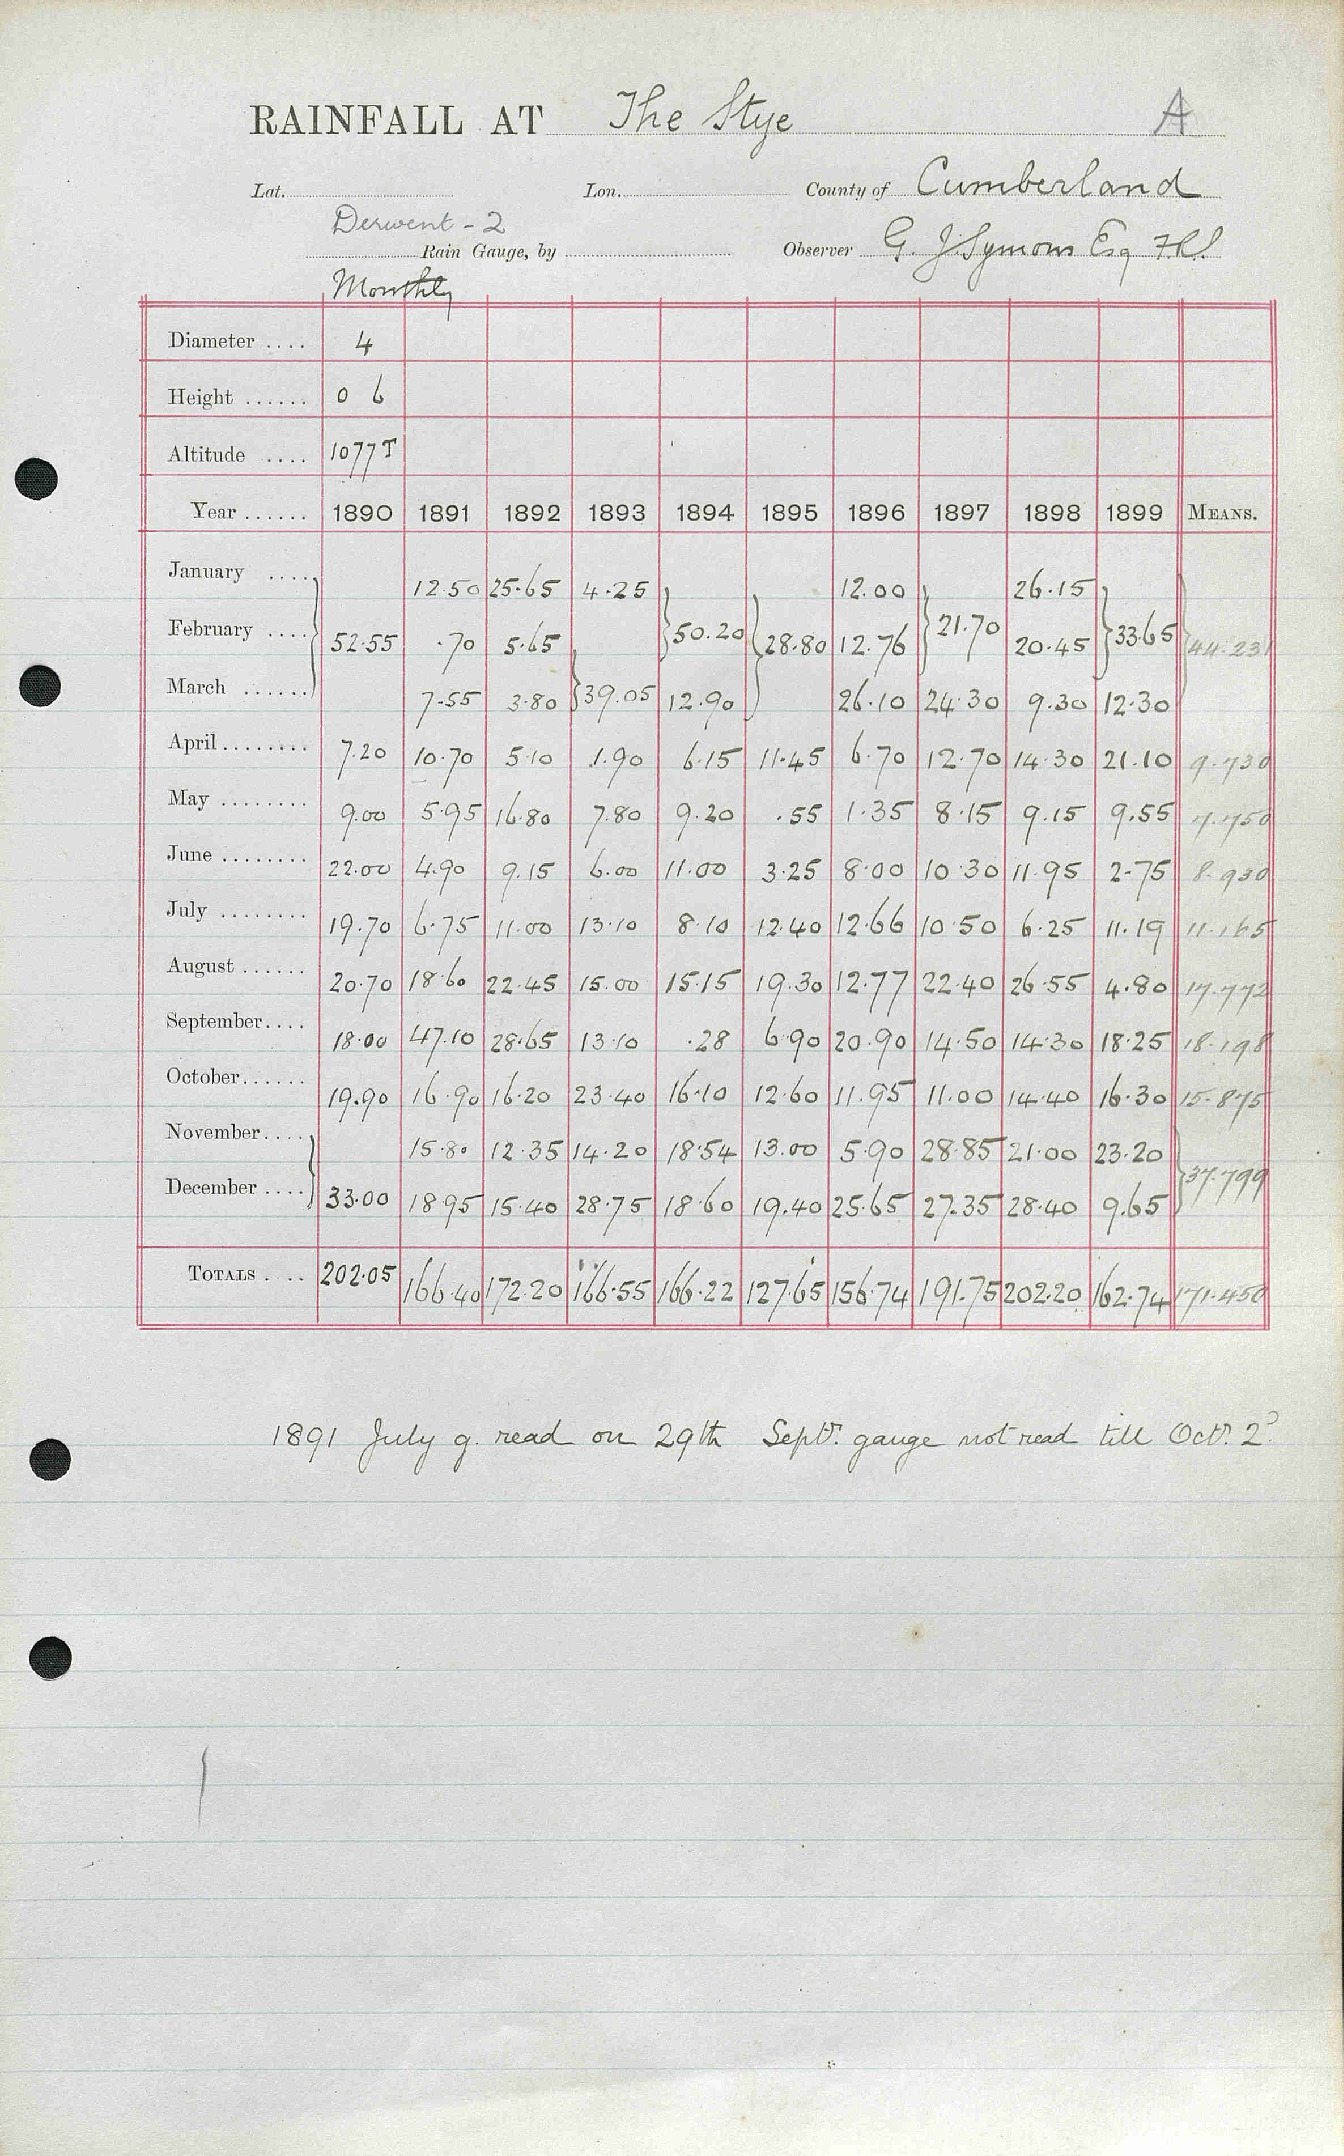 RAINFALL AT The Stye A
Lat. Lon. County of Cumberland
Derwent - 2
Rain Gauge, by Observer G. J. Symons Esq F.R.S.
Monthly
Diameter .... 4
Height ...... 0 6
Altitude .... 1077 T
Year ...... 1890 1891 1892 1893 1894 1895 1896 1897 1898 1899 MEANS.
January .... 12.50 25.65 4.25 12.00 26.15
February .... 52.55 .70 5.65 50.20 28.80 12.76 21.70 20.45 33.65 44.231
March ...... 7.55 3.80 39.05 12.90 26.10 24.30 9.30 12.30
April ........ 7.20 10.70 5.10 1.90 6.15 11.45 6.70 12.70 14.30 21.10 9.730
May ........ 9.00 5.95 16.80 7.80 9.20 .55 1.35 8.15 9.15 9.55 7.750
June ........ 22.00 4.90 9.15 6.00 11.00 3.25 8.00 10.30 11.95 2.75 8.930
July ........ 19.70 6.75 11.00 13.10 8.10 12.40 12.66 10.50 6.25 11.19 11.165
August ...... 20.70 18.60 22.45 15.00 15.15 19.30 12.77 22.40 26.55 4.80 17.772
September.... 18.00 47.10 28.65 13.10 .28 6.90 20.90 14.50 14.30 18.25 18.198
October...... 19.90 16.90 16.20 23.40 16.10 12.60 11.95 11.00 14.40 16.30 15.875
November.... 15.80 12.35 14.20 18.54 13.00 5.90 28.85 21.00 23.20
December .... 33.00 18.95 15.40 28.75 18.60 19.40 25.65 27.35 28.40 9.65 37.799
TOTALS .... 202.05 166.40 172.20 166.55 166.22 127.65 156.74 191.75 202.20 162.74 171.450
1891 July g. read on 29th Septr. gauge not read till Octr. 2